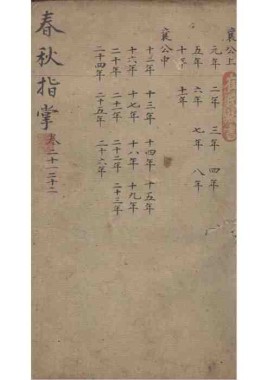 襄公上
元年 二年 三年 四年
五年 六年 七年 八年
襄公中
十二年 十三年 十四年 十五年
十六年 十七年 十八年 十九年
二十年 二十一年 二十二年 二十三年
二十四年 二十五年 二十六年
春秋指掌 卷二十一 二十二